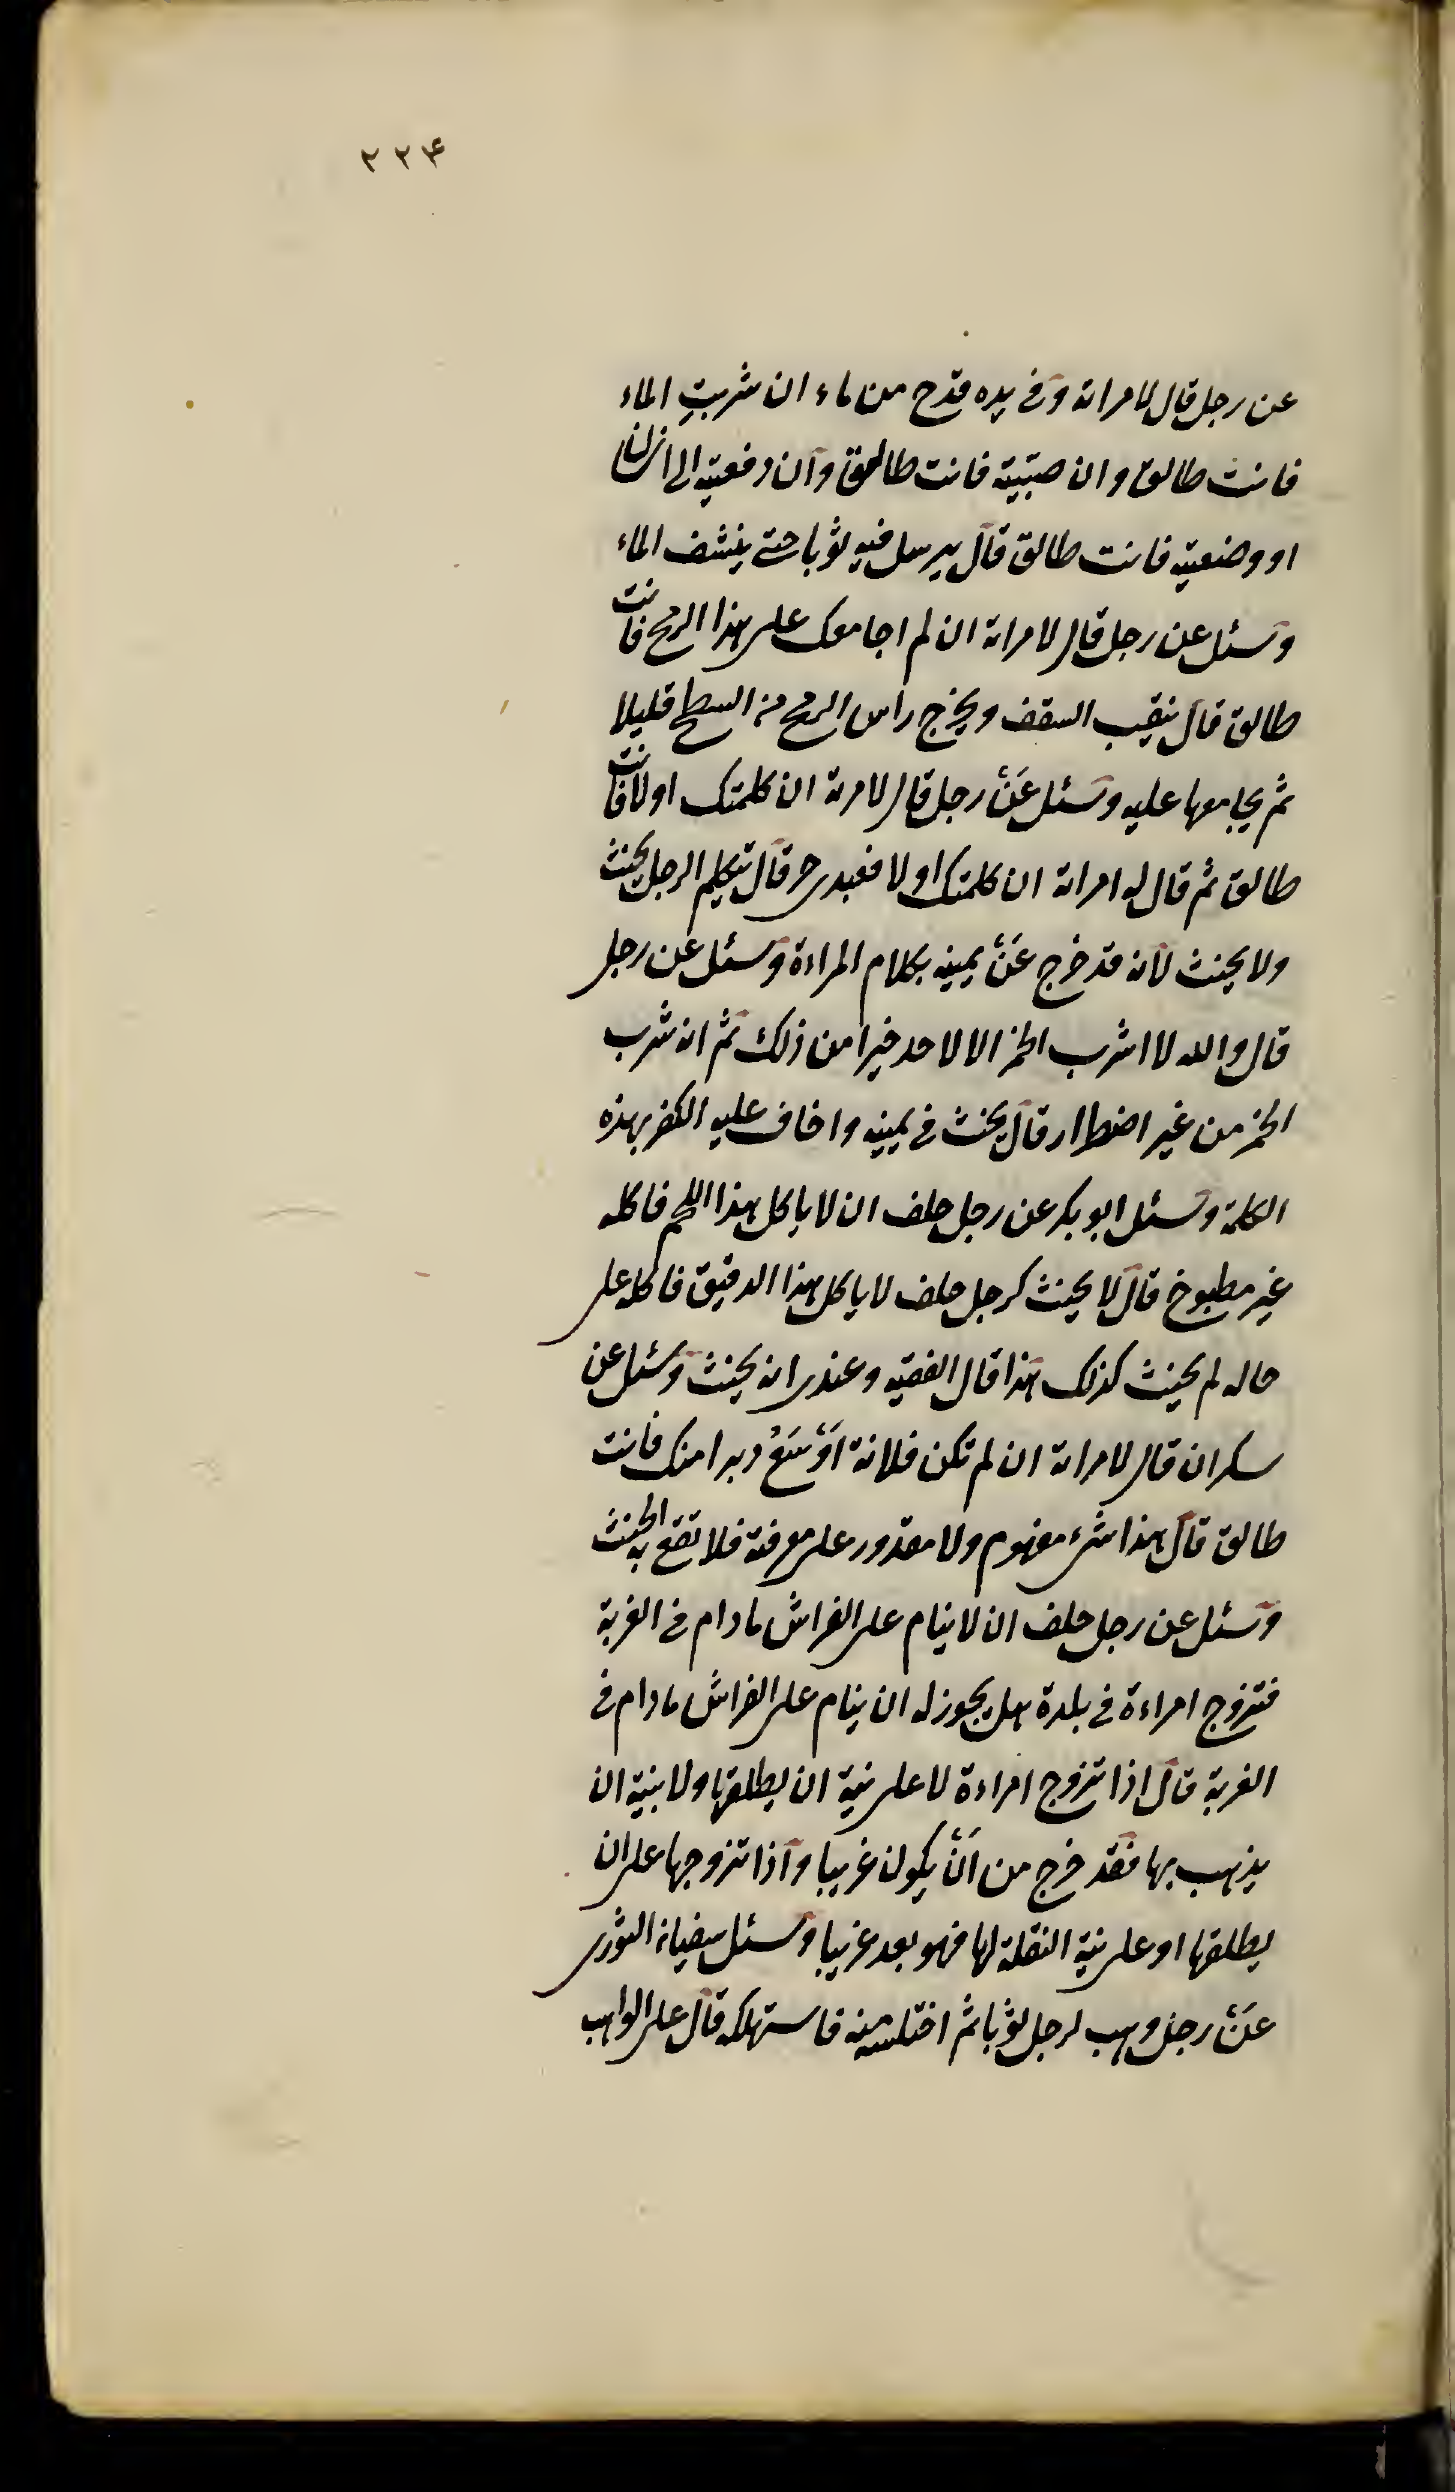 ٢٢۴
عن رجل قال لامراته وفي يده قدح من ماء ان شربتِ الماء
فانت طالق وان صبّيته فانت طالق وان دفعتيه الى انسان
او وضعتيه فانت طالق قال يرسل فيه ثوبا حتى ينشف الماء
وسئل عن رجل قال لامراته ان لم اجامعك على هذا الرمح فانت
طالق قال ينقب السقف ويخرج راس الرمح من السطح قليلا
ثم يجامعها عليه وسئل عَنْ رجل قال لامرته ان كلمتك اولا فانت
طالق ثم قال له امراته ان كلمتك اولا فعبدى حر قال تيكلم الرجل يحنث
ولا يحنث لانه قد خرج عَنْ يمينه بكلام المراءة وسئل عن رجل
قال والله لا اشرب الخمر الا لا حد خيرا من ذلك ثم انه شرب
الخمر من غير اضطرار قال يحنث في يمينه واخاف عليه الكفر بهذه
الكلمة وسئل ابو بكر عن رجل حلف ان لا ياكل هذا اللحم فاكله
غير مطبوخ قال لا يحنث كرجل حلف لا ياكل هذا الدقيق فاكله على
حاله لم يحنث كذلك هذا قال الفقيه وعندى انه يحنث وسئل عن
سكران قال لامراته ان لم تكن فلانة اَوْسَعُ دبرا منك فانت
طالق قال هذا شئ مفهوم ولا مقدور على معرفته فلا تقع به الحنث
وسئل عن رجل حلف ان لا ينام على الفراش ما دام في الغربة
فتزوج امراءة في بلدة هل يجوز له ان ينام على الفراش ما دام في
الغربة قال اذا تزوج امراءة لا على نية ان يطلقها ولا بنية ان
يذهب بها فقد خرج من اَنْ يكون غريبا واذا تزوجها على ان
يطلقها او على نية النقلة لها فهو بعد غريبا وسئل سفيان الثورى
عَنْ رجل وهب لرجل ثوبا ثم اختلسه منه فاستهلكه قال على الواهب